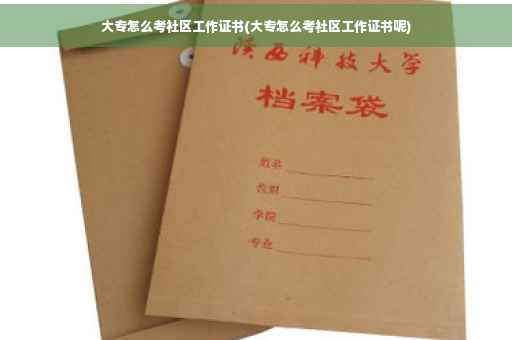 大专怎么考社区工作证书(大专怎么考社区工作证书呢)
陕西科技大学
档案袋
学院
专业